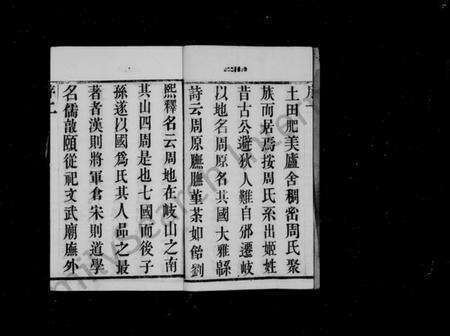 土田肥美廬舍稠密周氏聚
族而居焉按周氏系出姬姓
昔古公避狄人難自邠遷岐
以地名周原名其國大雅緜
詩云周原膴膴菫荼如飴劉
熙釋名云周地在岐山之南
其山四周是也七國而後子
孫遂以國爲氏其人品之最
著者漢則將軍倉宋則道學
名儒敦頤從祀文武廟廡外
序二